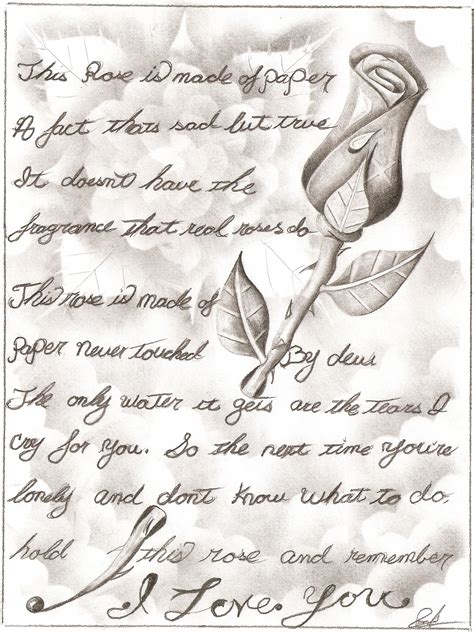 This Rose is made of paper
A fact thats sad but true
It doesnt have the
fragrance that real roses do
This rose is made of
paper never touched By deus
The only water it gets are the tears I
cry for you. So the next time you're
lonely and dont know what to do,
hold this rose and remember
I Love You